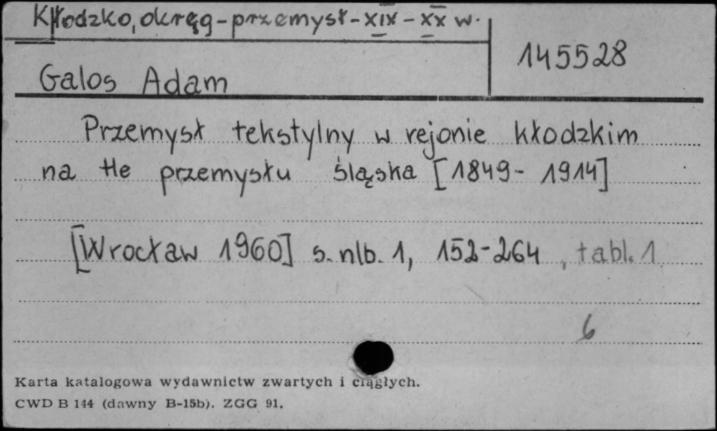 Kłodzko, okręg - przemysł - XIX - XX w.
145528
Galos Adam
Przemysł tekstylny w rejonie kłodzkim
na tle przemysłu śląska [1849 - 1914]
[Wrocław 1960] s. nlb. 1, 152-264, tabl. 1
6
Karta katalogowa wydawnictw zwartych i ciągłych.
CWD B 144 (dawny B-15b). ZGG 91.